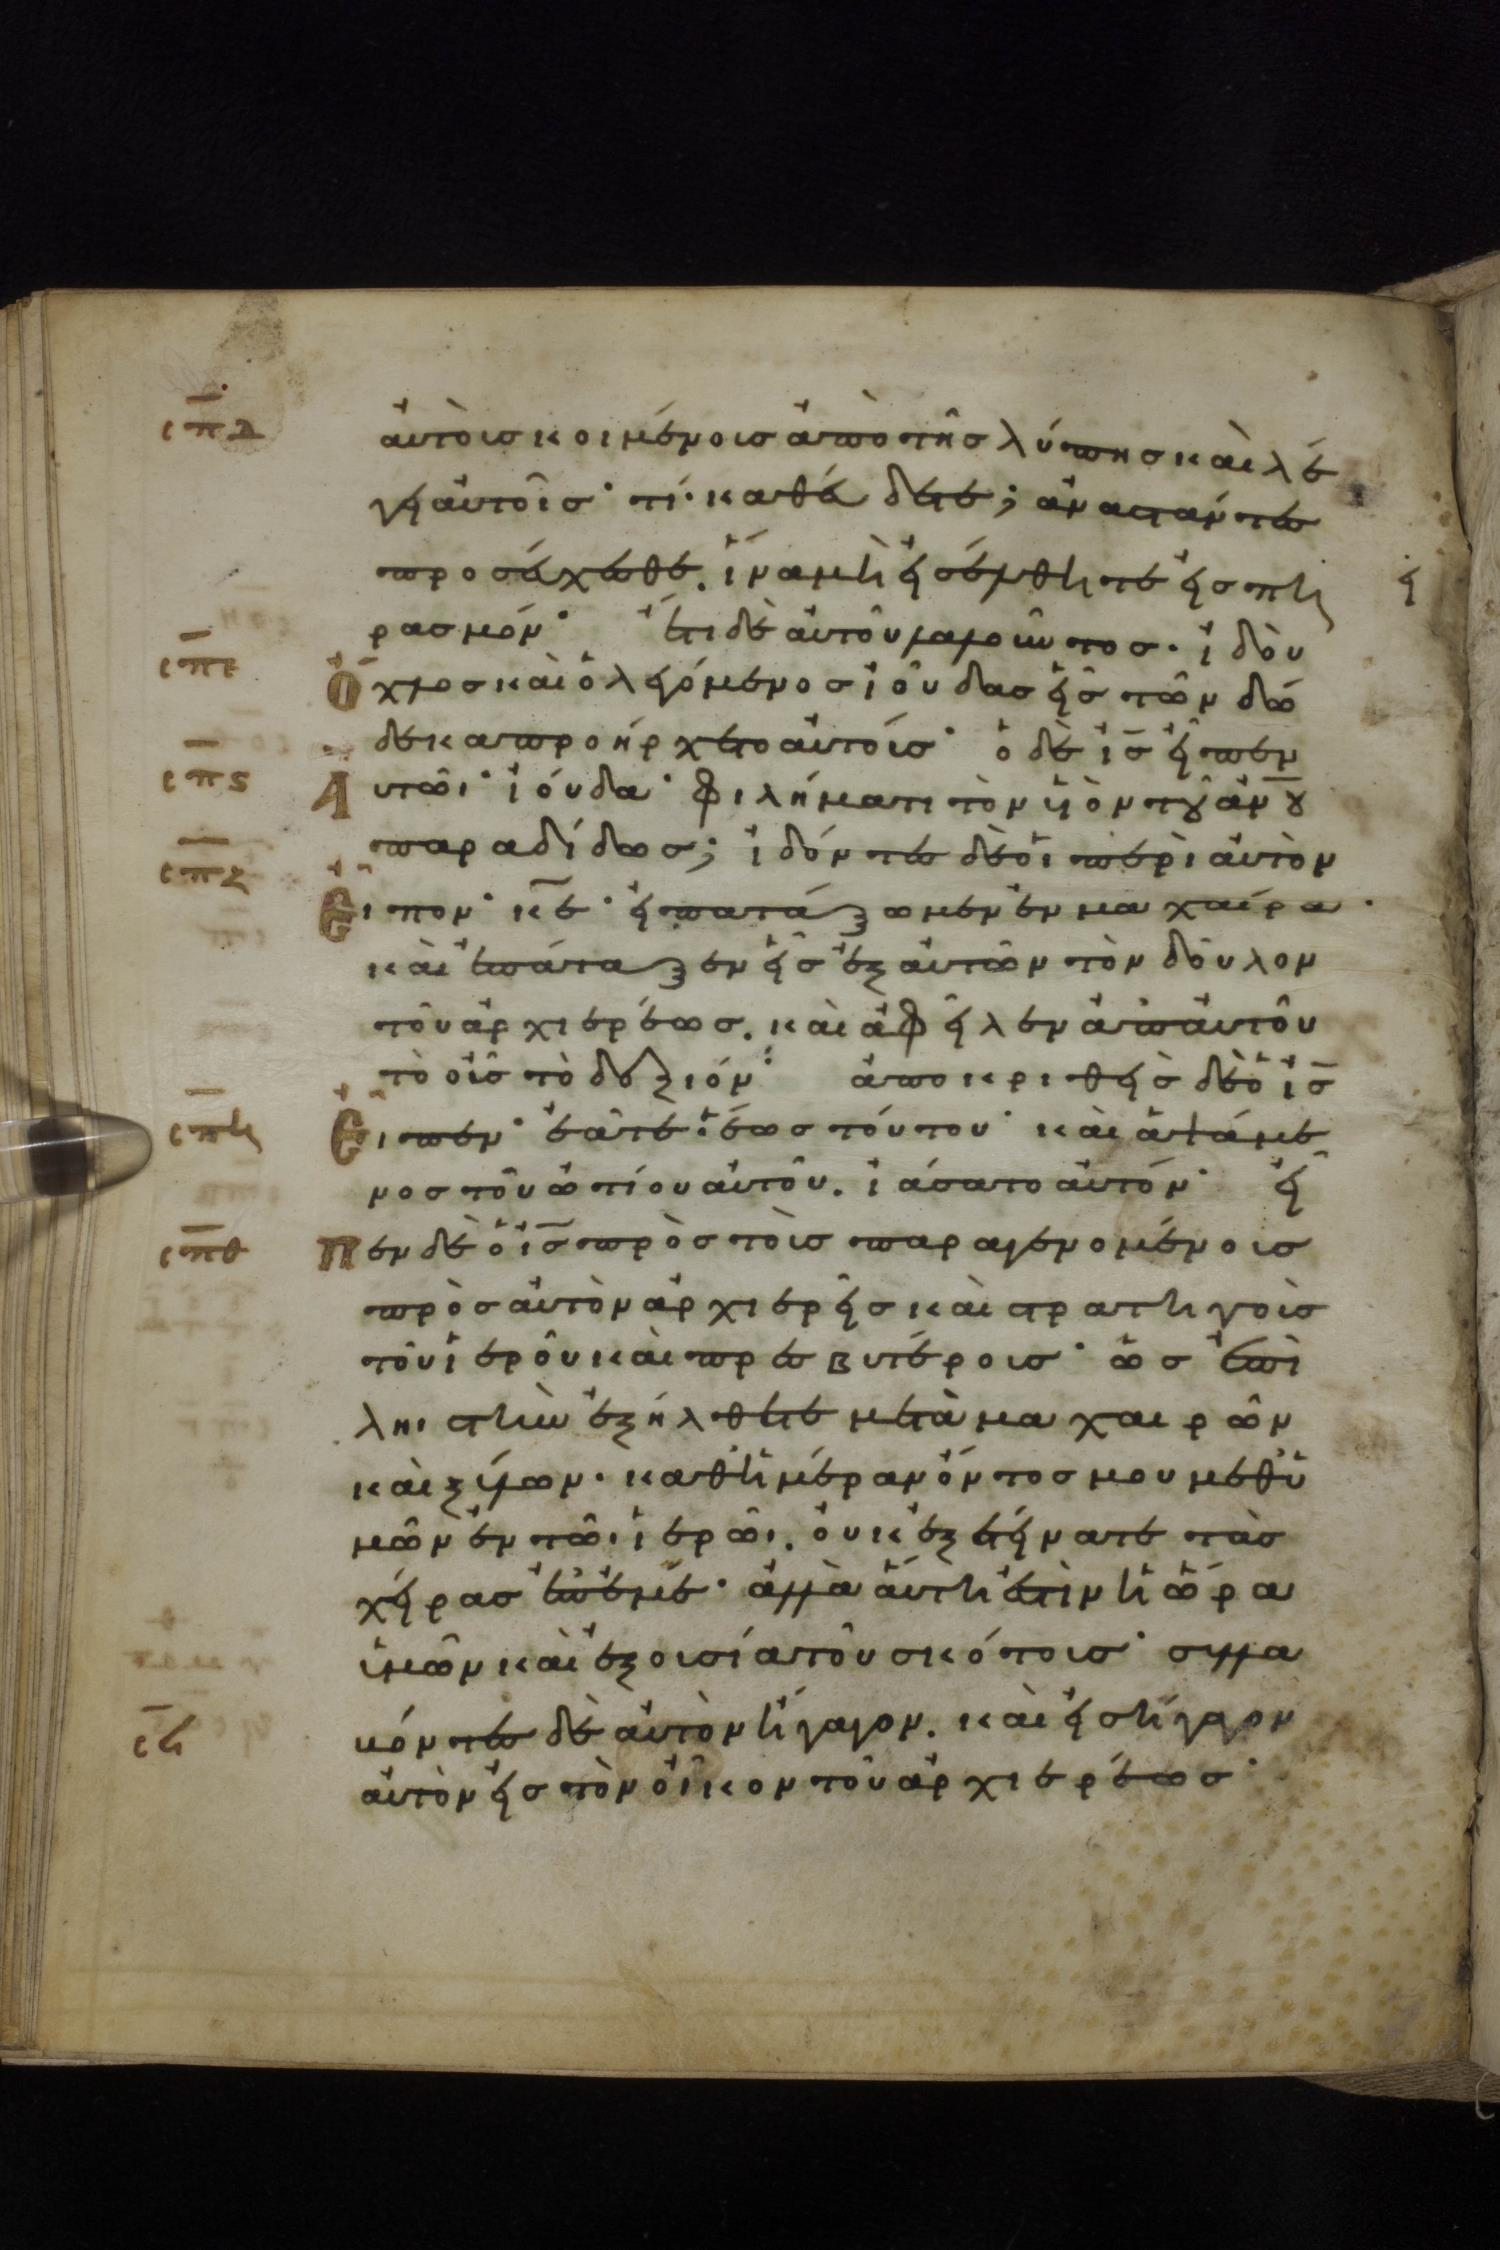 σπδ ἀυτοὺσ κοιμένουσ ἀπὸ τῆσ λύπησ καὶ λέ
γει ἀυτοῖσ· τί· καθέυδετε; ἀναστάντεσ
προσέυχεσθε. ἵνα μὴ εἰσέλθητε εἰσ πει
ρασμόν· ἔτι δὲ ἀυτοῦ λαλοῦντοσ· ἰδοὺ
σπε Ὄχλοσ καὶ ὁ λεγόμενοσ ἰούδασ εἷσ τῶν δώ
δεκα προήρχετο ἀυτούσ· ὁ δὲ ἰσ εἶπεν
σπς Αυτῶι· ἰούδα· φιλήματι τὸν υἱὸν τοῦ ἀνου
παραδίδωσ; ἰδόντεσ δὲ ὁι περὶ ἀυτὸν
σπζ Εἶπον· κε· εἰ πατάξωμεν ἐν μαχαίρα·
καὶ ἐπάταξεν εἷσ ἐξ ἀυτῶν τὸν δοῦλον
τοῦ ἀρχιερέωσ. καὶ ἀφεῖλεν ἀπ ἀυτοῦ
τὸ οὖσ τὸ δεξιόν· ἀποκριθεὶσ δὲ ὁ ἰσ
σπη Εἶπεν· ἐᾶτε ἕωσ τούτου· καὶ ἁψάμε
νοσ τοῦ ὠτίου ἀυτοῦ. ἰάσατο ἀυτόν· εἶ
σπθ Πεν δὲ ὁ ἰσ πρὸσ τοὺσ παραγενομένουσ
πρὸσ ἀυτὸν ἀρχιερεῖσ καὶ στρατηγοὺσ
τοῦ ἱεροῦ καὶ πρεσβυτέρουσ· ὡσ ἐπὶ
ληιστὴν ἐξήλθετε μετὰ μαχαιρῶν
καὶ ξύλων· καθἡμέραν ὄντοσ μου μεθὑ
μῶν ἐν τῶι ἱερῶι. ὀυκ ἐξετείνατε τὰσ
χεῖρασ ἐπ ἐμέ· ἀλλὰ ἅυτη ἐστὶν ἡ ὥρα
ὑμῶν καὶ ἐξουσία τοῦ σκότουσ· συλλα
σϟ βόντεσ δὲ ἀυτὸν ἤγαγον. καὶ εἰσήγαγον
ἀυτὸν εἰσ τὸν οἶκον τοῦ ἀρχιερέωσ·